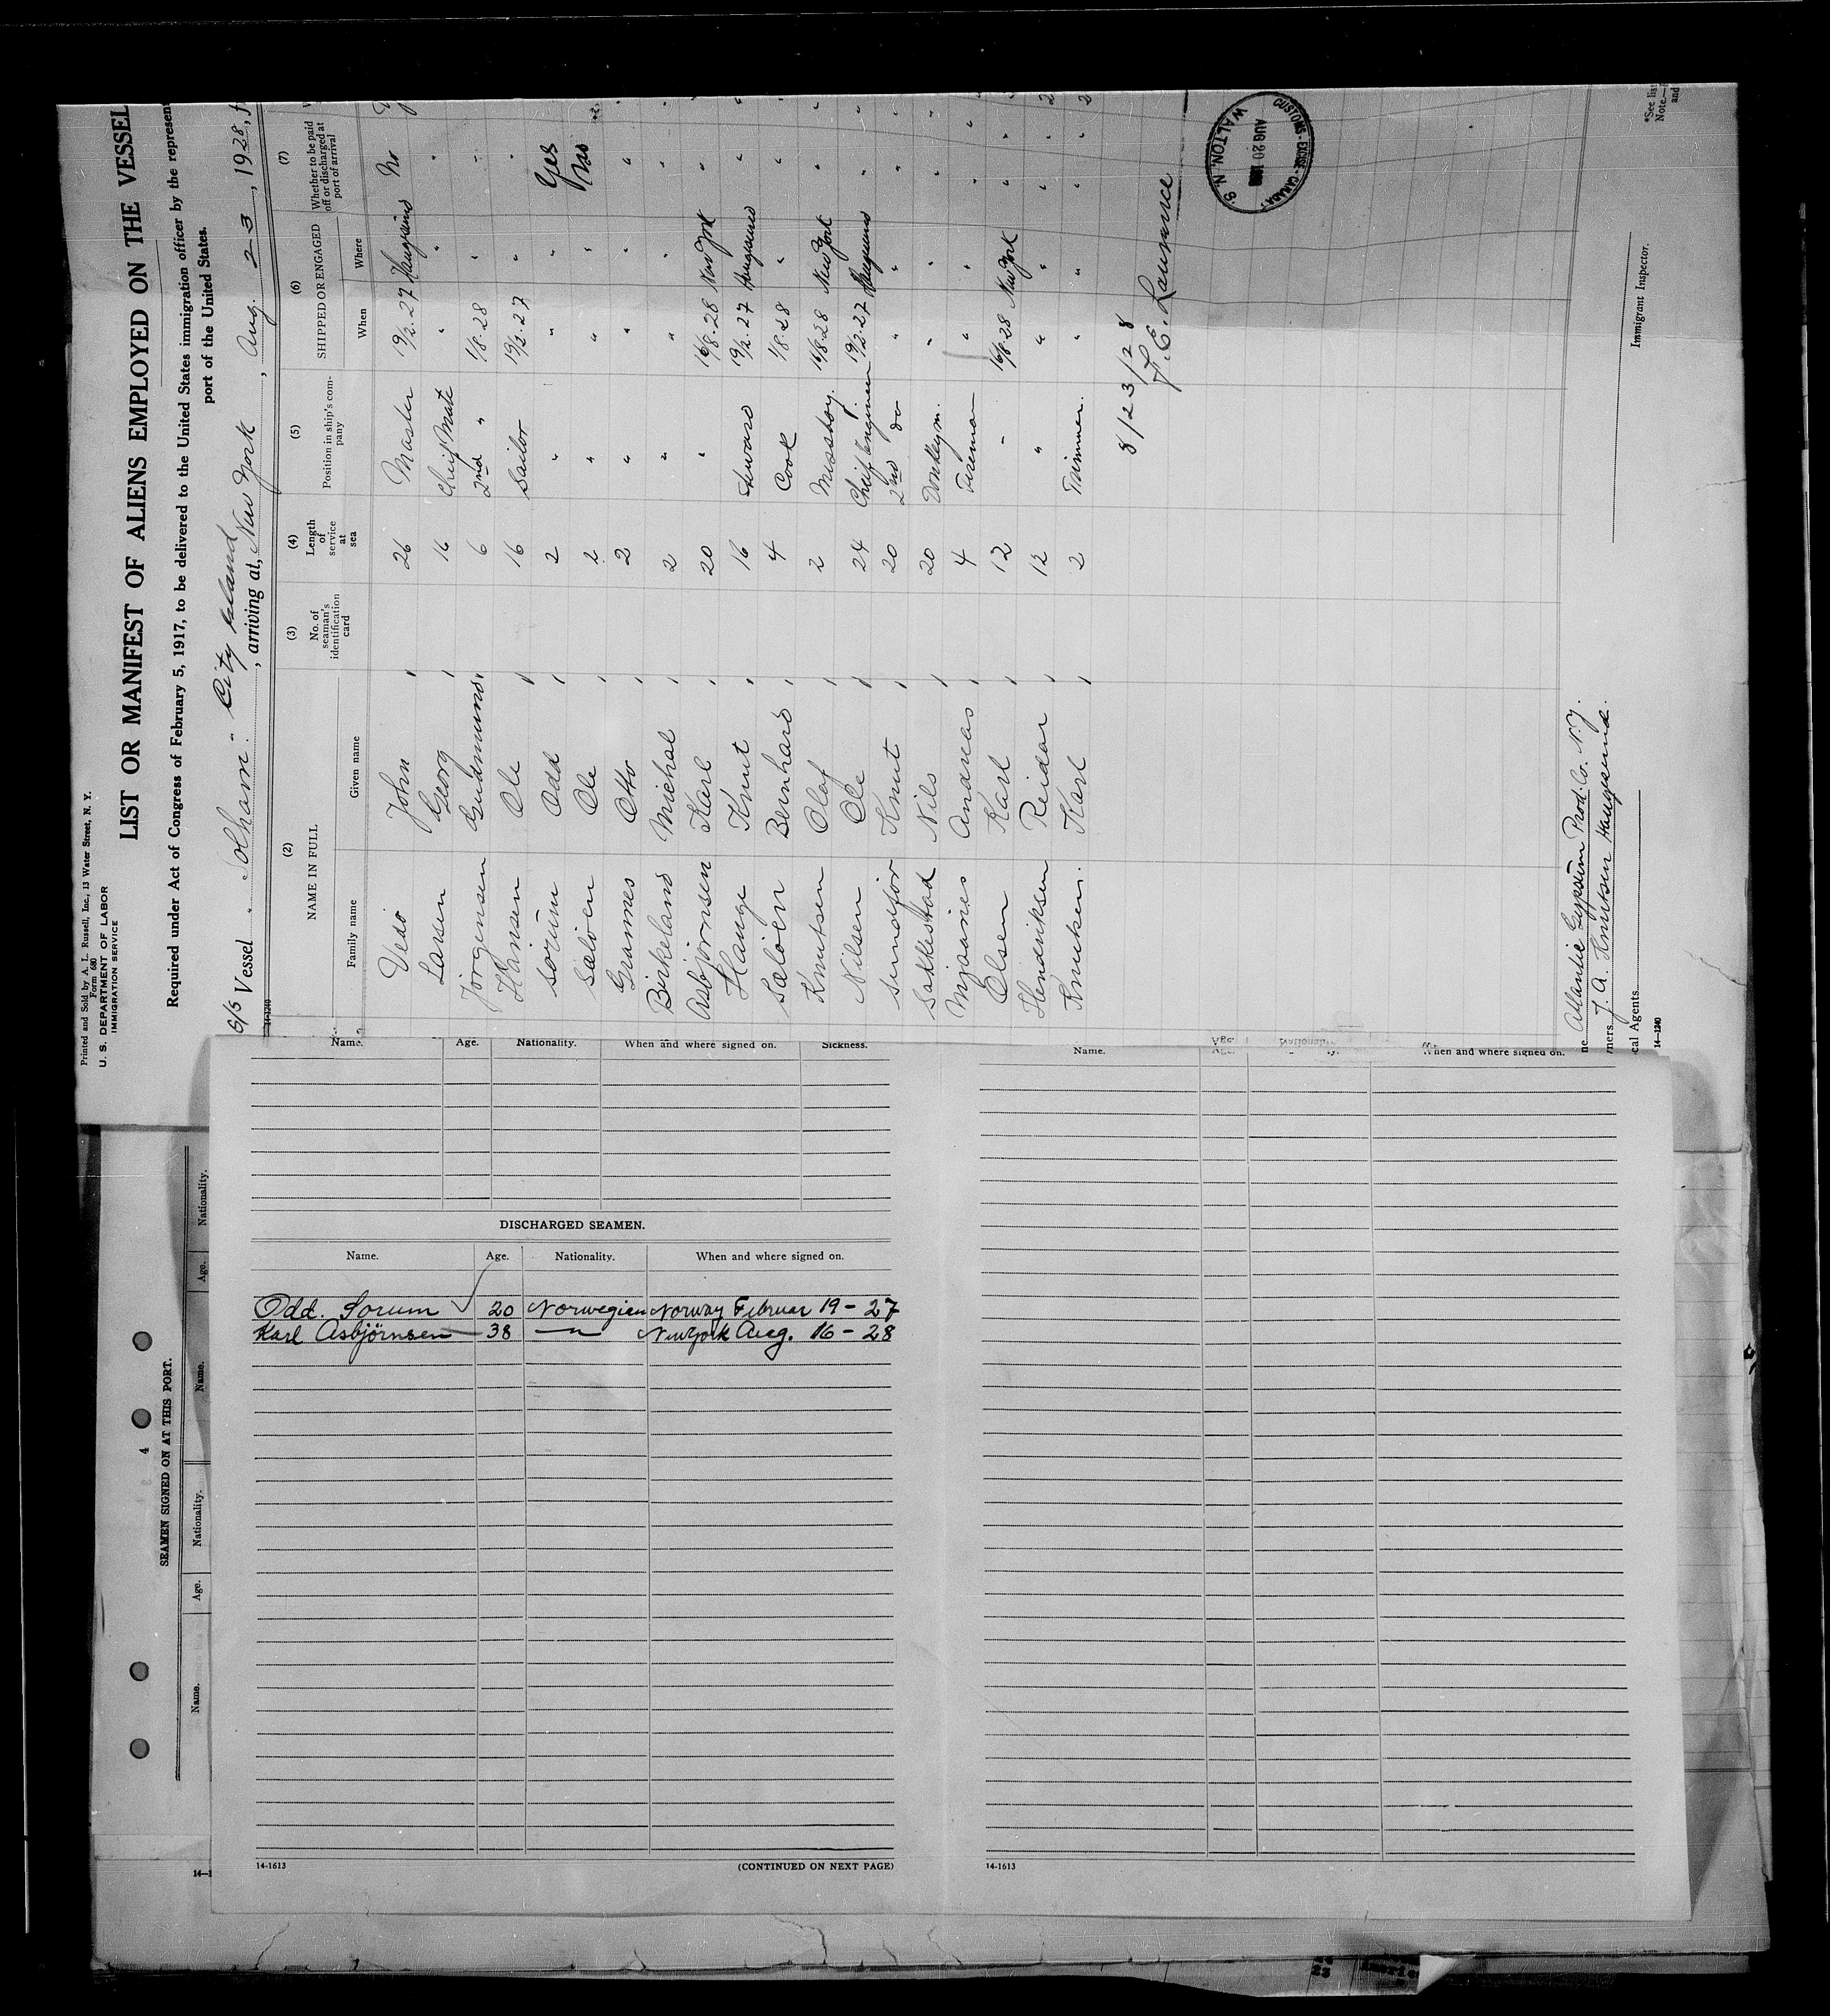 Printed and Sold by A. L. Russell, Inc., 13 Water Street, N. Y.
Form 680
U. S. DEPARTMENT OF LABOR
IMMIGRATION SERVICE
LIST OR MANIFEST OF ALIENS EMPLOYED ON THE VESSEL
Required under Act of Congress of February 5, 1917, to be delivered to the United States immigration officer by the represen
port of the United States.
S/S Vessel "Solhavn" City Island, arriving at New York, Aug. 23, 1928, f
14-1240
(2) (3) (4) (5) (6) (7)
NAME IN FULL
No. of seaman's identification card
Length of service at sea
Position in ship's company
SHIPPED OR ENGAGED
Whether to be paid off or discharged at port of arrival
Family name Given name When Where
Vedø John 26 Master 19/2.27 Haugesund No
Larsen Georg 16 Chief Mate " " "
Jörgensen Gudmund 6 2nd " 1/8.28 " "
Hansen Ole 16 Sailor 19/2.27 " "
Sorum Odd 2 " " " Yes
Ole 2 " " " No
Grannes Otto 2 " " " "
Birkeland Michal 2 " " " "
Asbjörnsen Karl 20 " 16/8.28 New York "
Hauge Knut 16 Steward 19/2.27 Haugesund "
Bernhard 4 Cook 1/8.28 " "
Knutsen Olaf 2 Messboy. 16/8.28 New York "
Nilsen Ole 24 Chief Engineer 19/2.27 Haugesund "
Knut 20 2nd do " " "
Nils 20 Donkeym. " " "
Andreas 4 Fireman " " "
Olsen Karl 12 " 16/8.28 New York "
Hendriksen Reidar 12 " " " "
Knutsen. Karl 2 Trimmer. " " "
8/23/28
CUSTOMS - EXCISE - CANADA
AUG 20
WALTON, N. S.
Atlantic Gypsum Prod. Co. N.Y.
ners J. A. Knutsen Haugesund.
cal Agents
14-1240
Immigrant Inspector.
*See lis
Note.—
and
Name. Age. Nationality. When and where signed on. Sickness.
DISCHARGED SEAMEN.
Name. Age. Nationality. When and where signed on.
Odd. Sorum 20 Norwegian Norway Februar 19 - 27
Karl Asbjørnsen 38 — " — New York Aug. 16 - 28
14-1613 (CONTINUED ON NEXT PAGE)
Name. Age. Nationality. When and where signed on.
14-1613
4
SEAMEN SIGNED ON AT THIS PORT.
Name. Age. Nationality. Name. Age. Nationality.